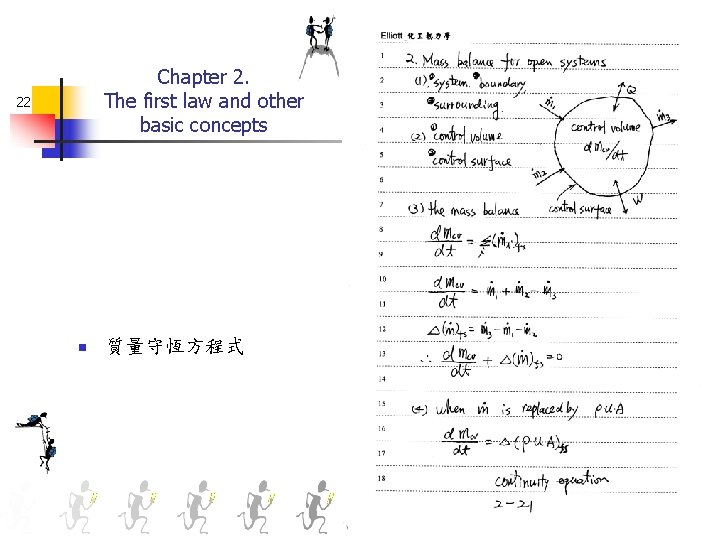 Chapter 2.
The first law and other
basic concepts
22
質量守恆方程式
Elliott 化工熱力學
1 2. Mass balance for open systems
2 (1) ① system ② boundary
3 ③ surrounding
4 (2) ① control volume
5 ② control surface
6
7 (3) the mass balance
8 d mcv/dt = Σi (ṁi)fs
9
10 d mcv/dt = ṁ1 + ṁ2 - ṁ3
11
12 Δ(ṁ)fs = ṁ3 - ṁ1 - ṁ2
13 ∴ d mcv/dt + Δ(ṁ)fs = 0
14
15 (4) when ṁ is replaced by ρuA
16 d mcv/dt = Δ(ρuA)fs
17
18 continuity equation
2-21
Q
ṁ1
ṁ3
control volume
d mcv/dt
ṁ2
W
control surface